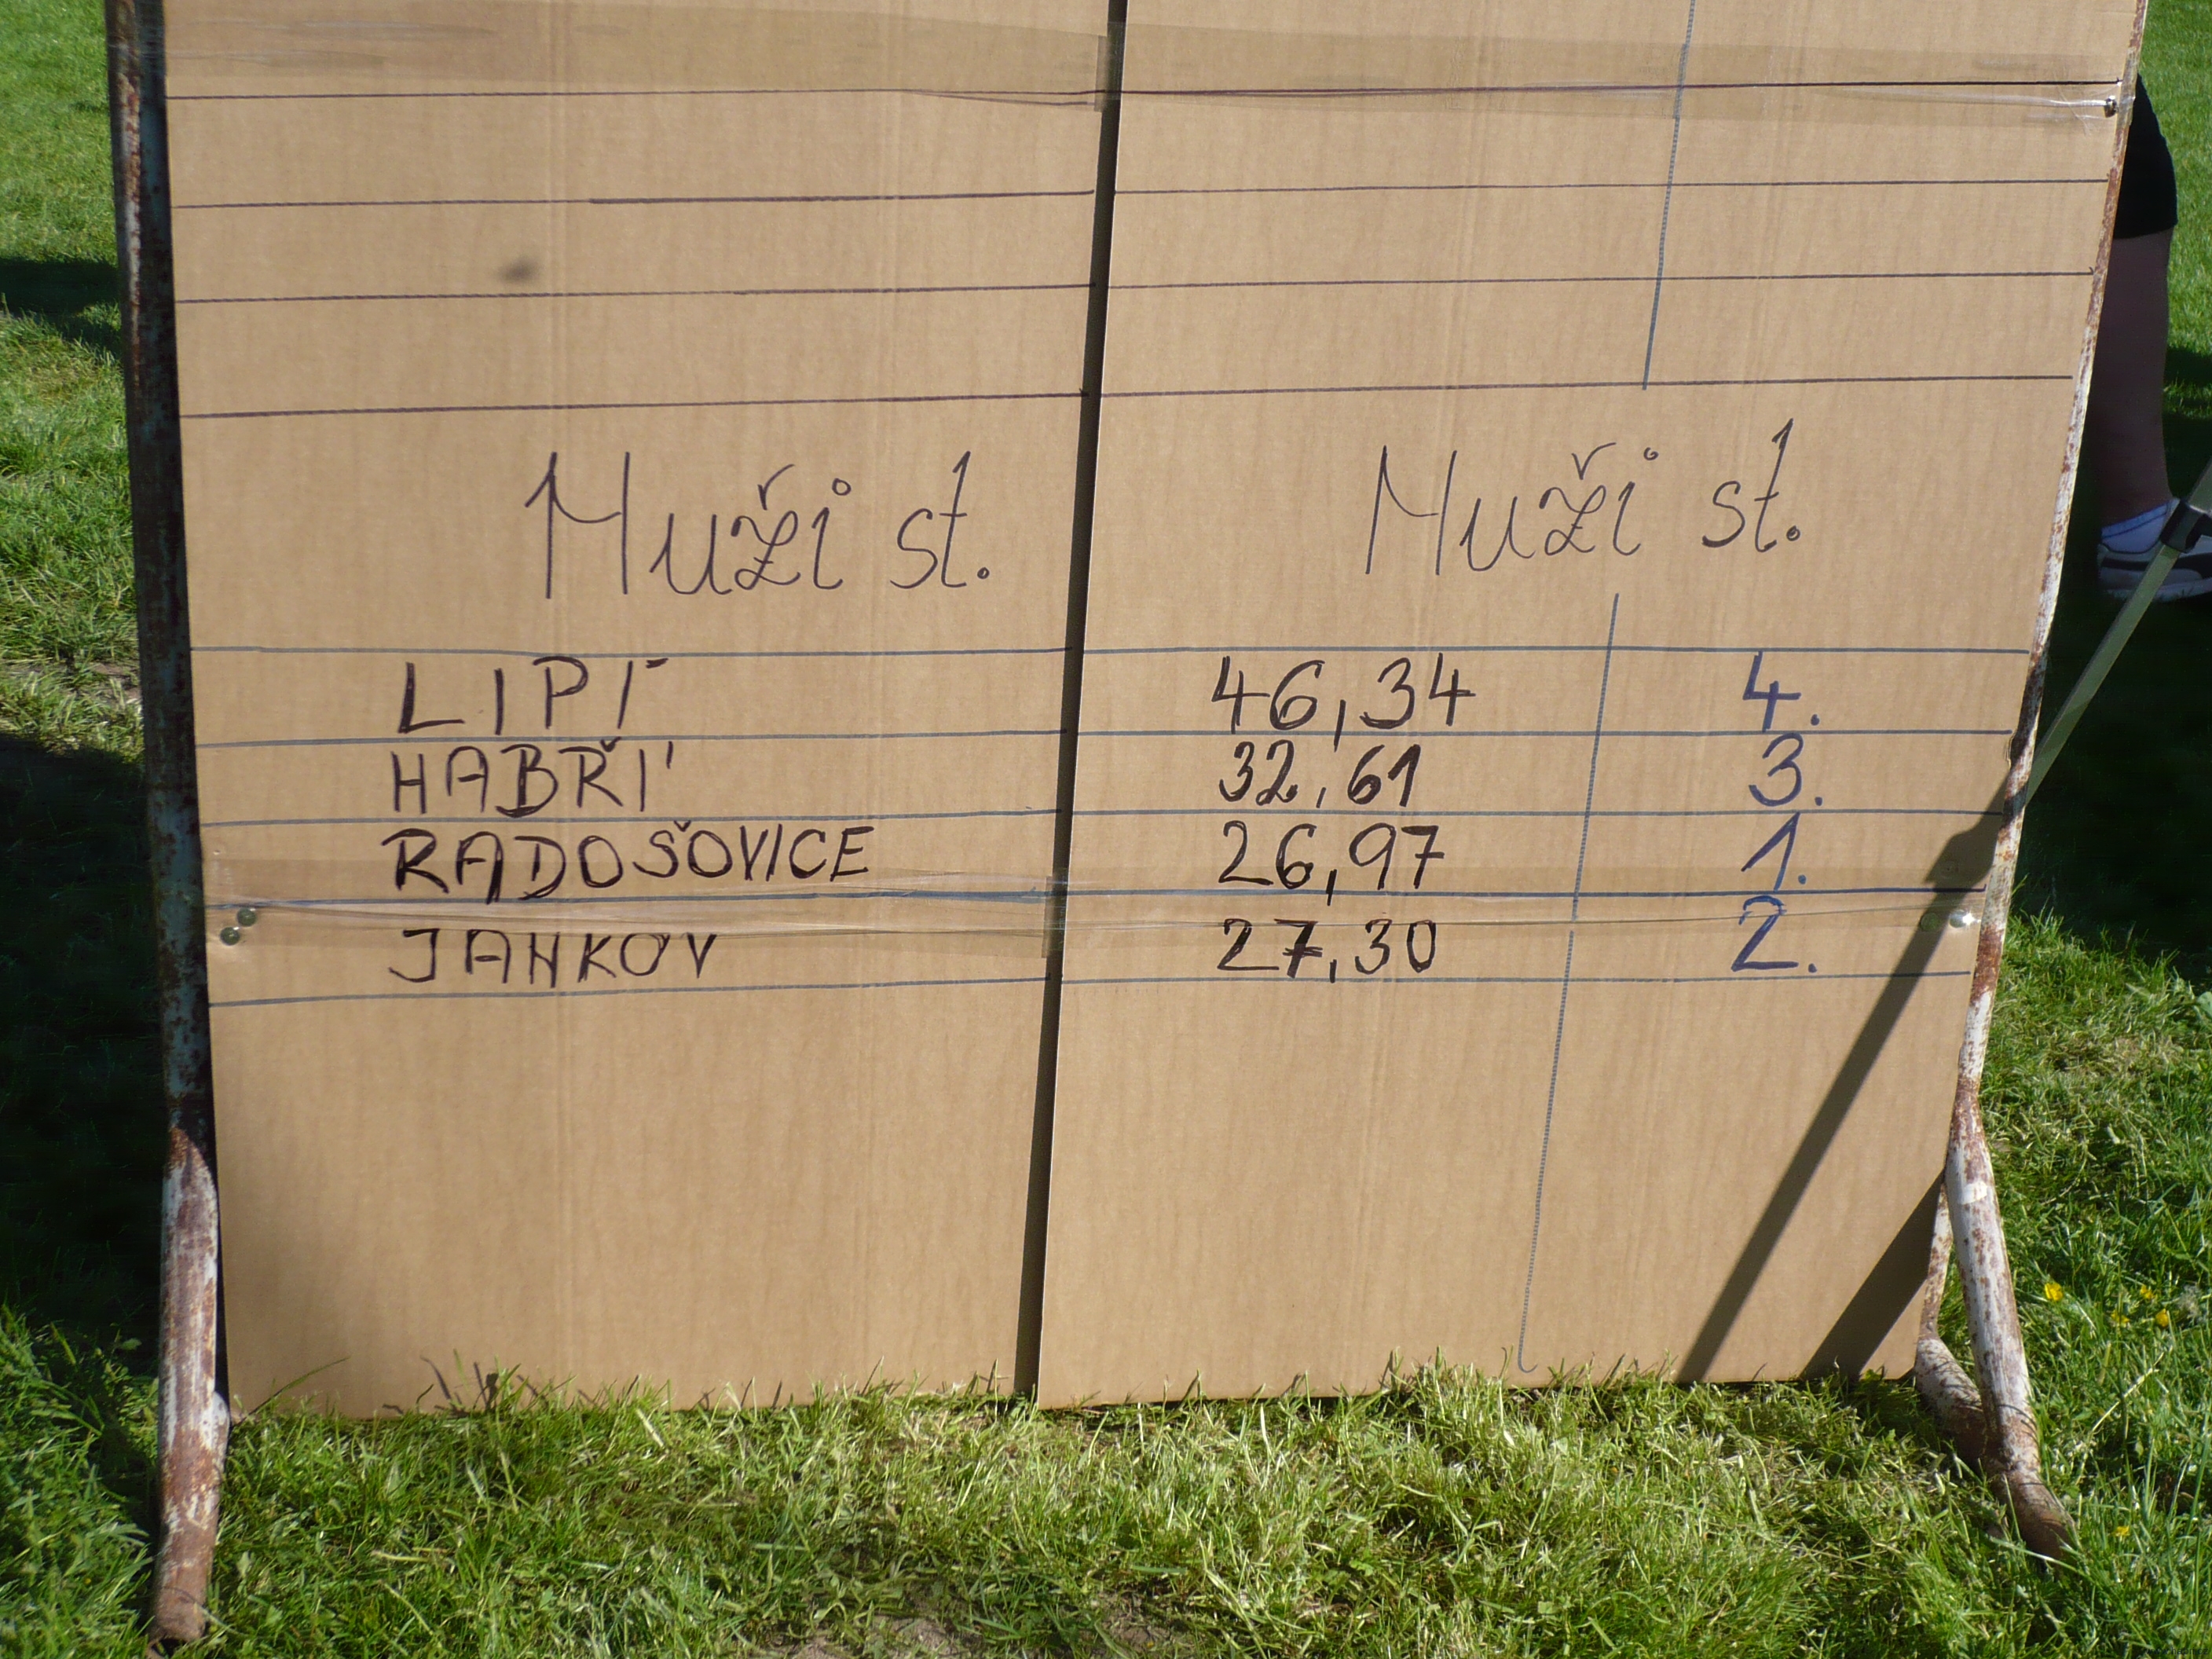 Muži st. Muži st.
LIPÍ 46,34 4.
HABŘÍ 32,61 3.
RADOŠOVICE 26,97 1.
JANKOV 27,30 2.